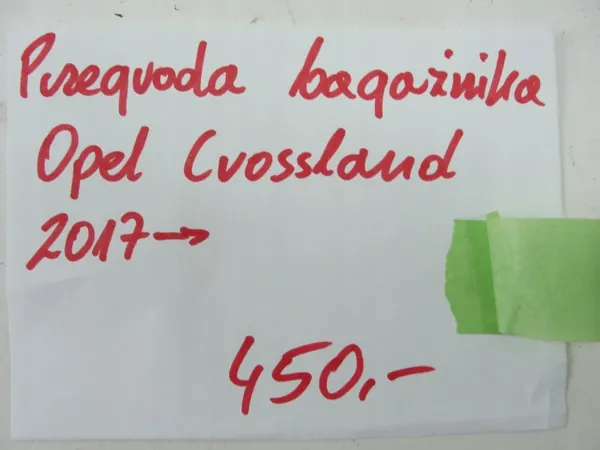 Przegroda bagażnika
Opel Crossland
2017→
450,-